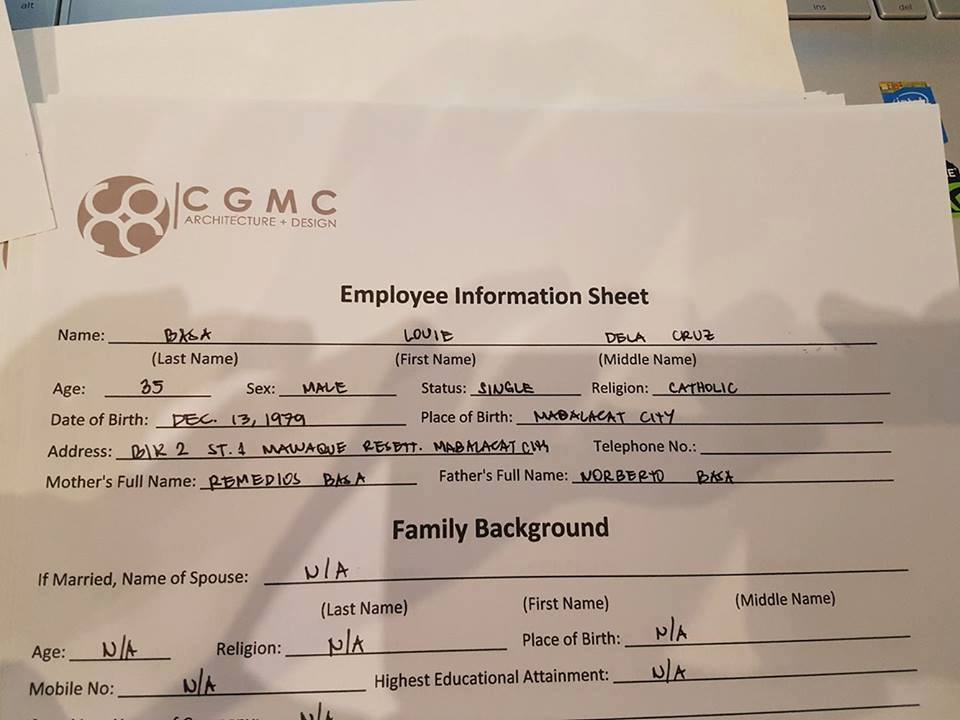 alt
ins
del
CGMC
ARCHITECTURE + DESIGN
Employee Information Sheet
Name: BASA LOUIE DELA CRUZ
(Last Name) (First Name) (Middle Name)
Age: 35 Sex: MALE Status: SINGLE Religion: CATHOLIC
Date of Birth: DEC. 13, 1979 Place of Birth: MABALACAT CITY
Address: BLK 2 ST. 1 MAWAQUE RESETT. MABALACAT CITY Telephone No.:
Mother's Full Name: REMEDIOS BASA Father's Full Name: NORBERTO BASA
Family Background
If Married, Name of Spouse: N/A
(Last Name) (First Name) (Middle Name)
Age: N/A Religion: N/A Place of Birth: N/A
Mobile No: N/A Highest Educational Attainment: N/A
N/A